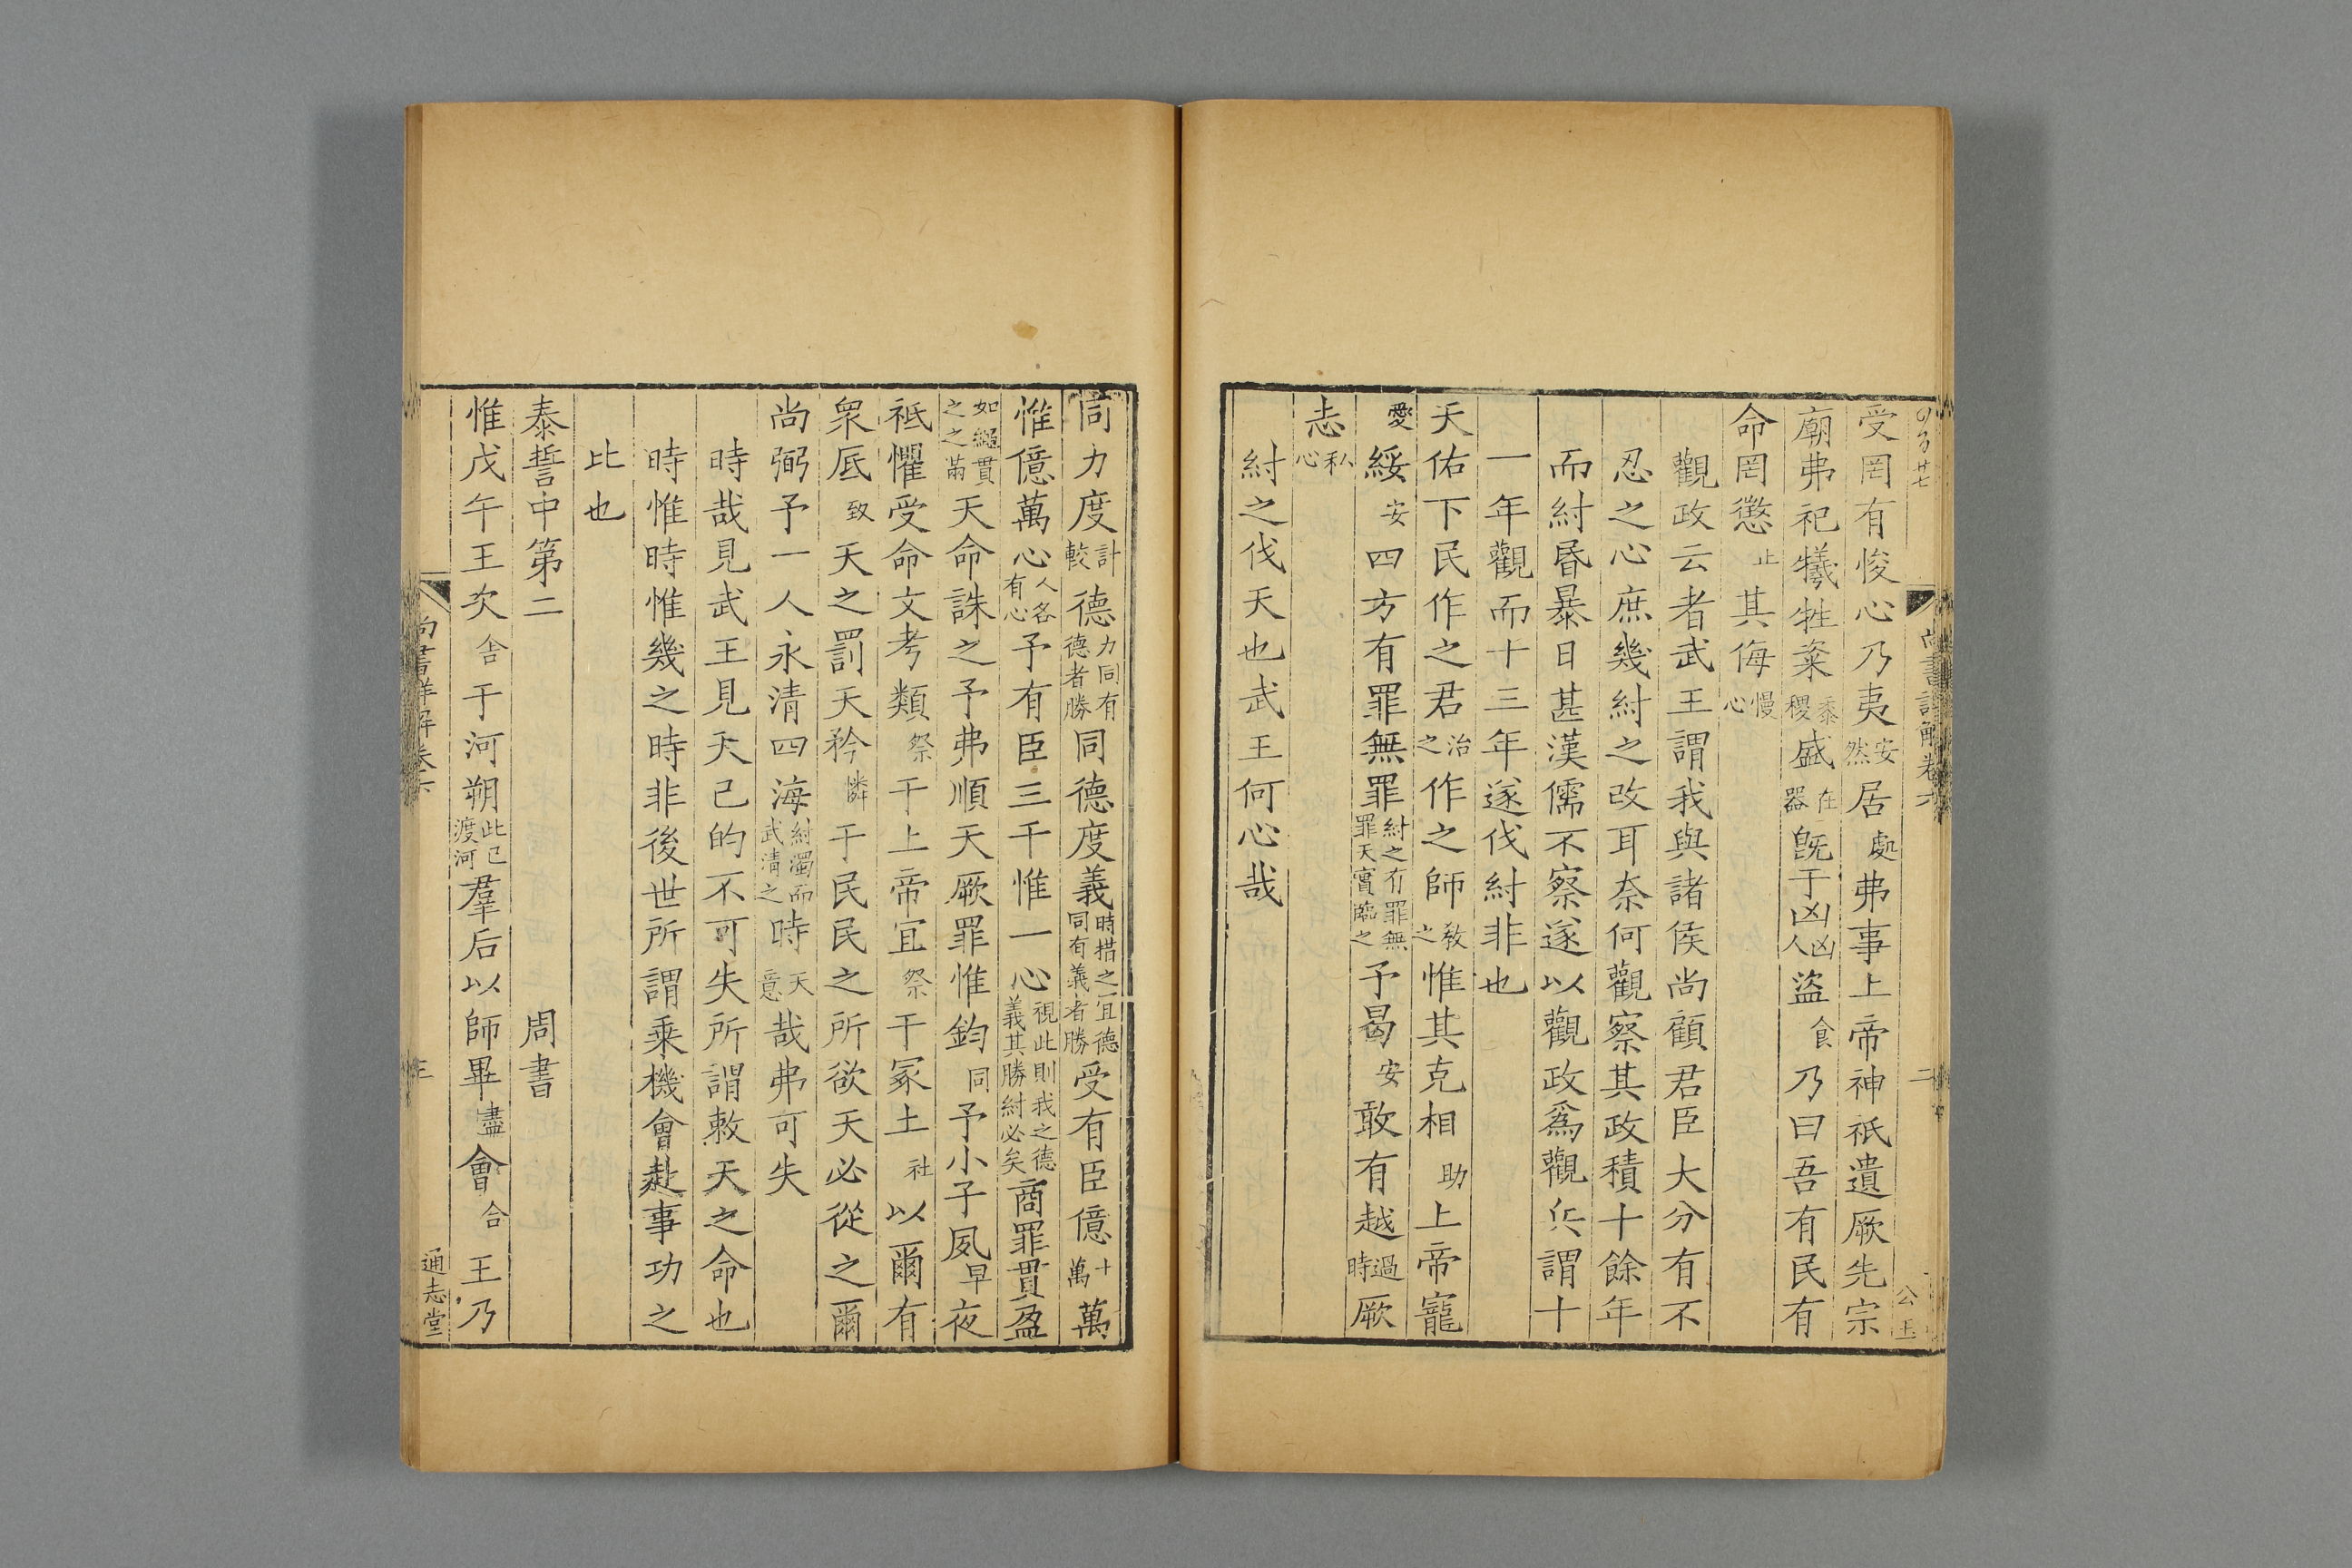 受罔有悛心乃夷安然居處弗事上帝神祇遺厥先宗
廟弗祀犧牲粢黍稷盛在器旣于凶凶人盜食乃曰吾有民有
命罔懲止其侮慢心
觀政云者武王謂我與諸侯尚顧君臣大分有不
忍之心庶幾紂之改耳奈何觀察其政積十餘年
而紂昬暴日甚漢儒不察遂以觀政爲觀兵謂十
一年觀而十三年遂伐紂非也
天佑下民作之君治之作之師敎之惟其克相助上帝寵
愛綏安四方有罪無罪紂之有罪無罪天實臨之予曷安敢有越過時厥
志私心
紂之伐天也武王何心哉
同力度計較德力同有德者勝同德度義時措之宜德同有義者勝受有臣億十萬萬
惟億萬心人各有心予有臣三千惟一心視此則我之德義其勝紂必矣商罪貫盈
如繩貫之之滿天命誅之予弗順天厥罪惟鈞同予小子夙早夜
祗懼受命文考類祭于上帝宜祭于冢土社以爾有
衆厎致天之罰天矜憐于民民之所欲天必從之爾
尚弼予一人永清四海紂濁而武淸之時天意哉弗可失
時哉見武王見天已的不可失所謂敕天之命也
時惟時惟幾之時非後世所謂乘機會赴事功之
比也
泰誓中第二 周書
惟戊午王次舍于河朔此已渡河羣后以師畢盡會合王乃
尚書詳解卷六
二
公玉
尚書詳解卷六
三
通志堂